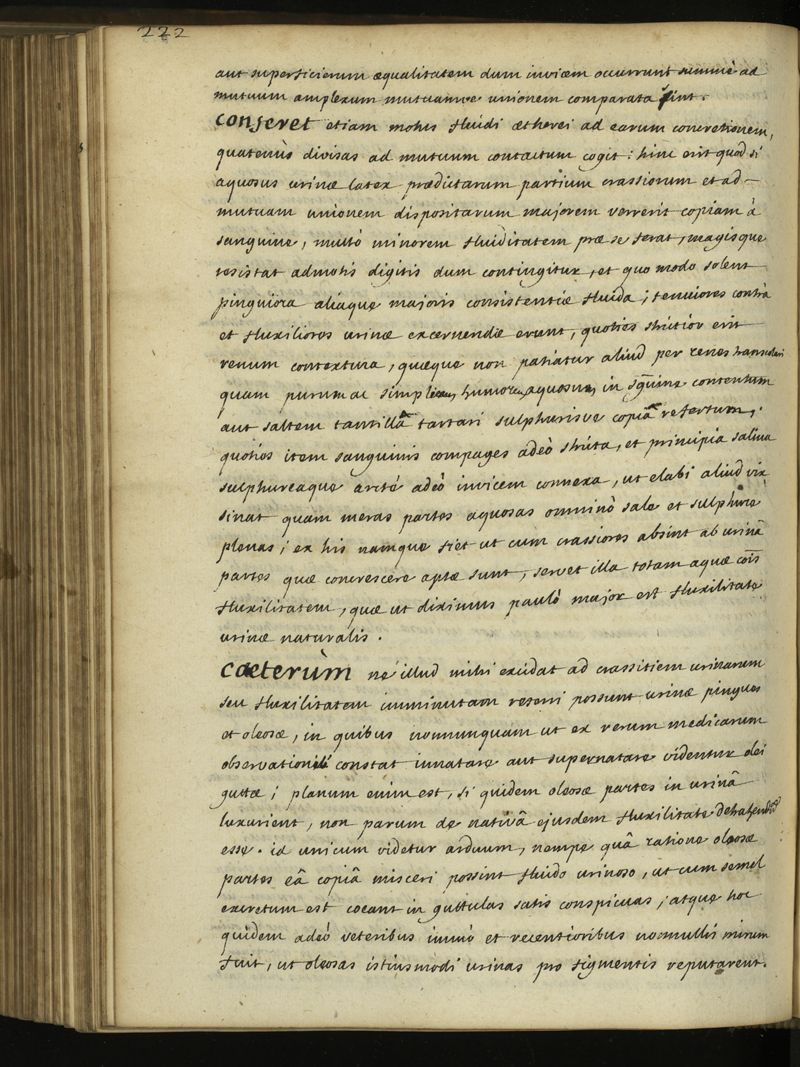 222
aut superficierum æqualitatem dum invicem occurrunt summè ad
mutuum amplexum mutuamve unionem comparata sint.
conferet etiam motus fluidi ætherei ad earum concretionem,
quatenùs divisas ad mutuum contactum cogit: hinc erit quod si
aquosus urinæ latex prædictarum partium crassiorum et ad-
mutuam unionem dispositarum majorem verrerit copiam à
sanguine, multò minorem fluiditatem præ se ferat, magisque
resistat admotis digitis dum contingitur, et quo modo solent
pinguiora aliaque majoris consistentiæ fluida; tenuiores contrà
et fluxiliores urinæ excernendæ erunt, quoties strictior erit
renum contextura, quæque non patiatur aliud per renes transcolari
quam purum ac simplicem humorem aquosum, in sguine contentum
aut saltem tantillâ tartari sulphurisve copiâ refertum,
quoties item sanguinis compages adeò stricta, et principia salina
sulphureaque arcté adeò invicem connexa, ut elabi aliud vix
sinat quam meras partes aquosas omninò sale et sulphure
plenas; ex his namque fiet ut cum crassiores absint ab urinâ
partes quæ concrescere aptæ sunt, servet illa totam aquæ cōis
fluxilitatem, quæ ut diximus paulò major est fluxilitate
urinæ naturalis.
cæterùm né illud mihi excidat ad crassitiem urinarum
seu fluxilitatem imminutam referri possunt urinæ pingues
et oleosæ, in quibus nonnunquam ut ex rerum medicarum
constat innatare aut supernatare videntur olei
guttæ; planum enim est, si quidem oleosæ partes in urinâ
luxurient, non parum de nativâ ejusdem fluxilitate
esse. id unicum videtur arduum, nempe quâ ratione oleosæ
partes eâ copiâ misceri possint fluido urinoso, ut cum semel
excretum est coeant in guttulas satis conspicuas; atque hoc
quidem adeò veteribus immò et recentioribus nonnullis mirum
fuit, ut oleosas istiusmodi urinas pro figmentis reputarent.